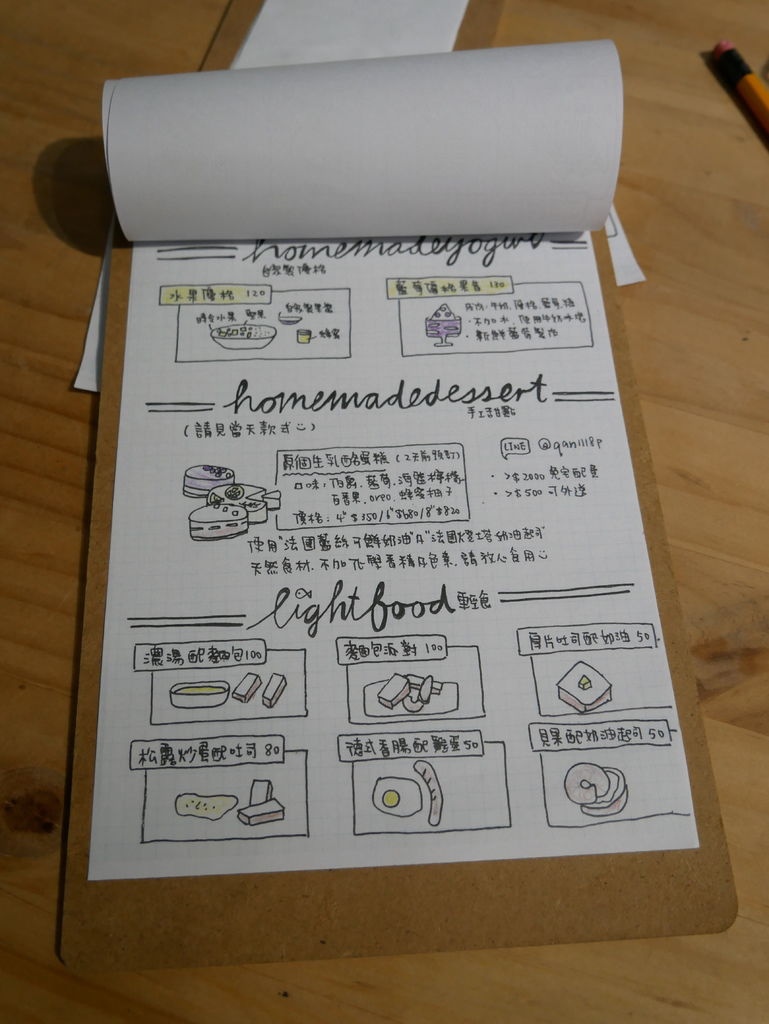 homemadeyogurt
自家製優格
水果優格 120
時令水果 堅果 自家製果醬
蜂蜜
藍莓優格果昔 130
成份:牛奶.優格.藍莓.糖
·不加水,使用牛奶冰塊
·新鮮藍莓製作
homemadedessert
手工甜點
(請見當天款式)
原個生乳酪蛋糕 (2天前預訂)
口味:伯爵.藍莓.海鹽檸檬
百香果.oreo.蜂蜜柚子
價格:4"$350/6"$680/8"$820
LINE @qan1118p
·>$2000 免宅配費
·>$500 可外送
使用"法國藍絲可鮮奶油"&"法國燈塔奶油起司"
天然食材.不加化學香精&色素.請放心食用
lightfood 輕食
濃湯配麵包100
麵包派對 100
厚片吐司配奶油 50
松露炒蛋配吐司 80
德式香腸配雞蛋50
貝果配奶油起司 50